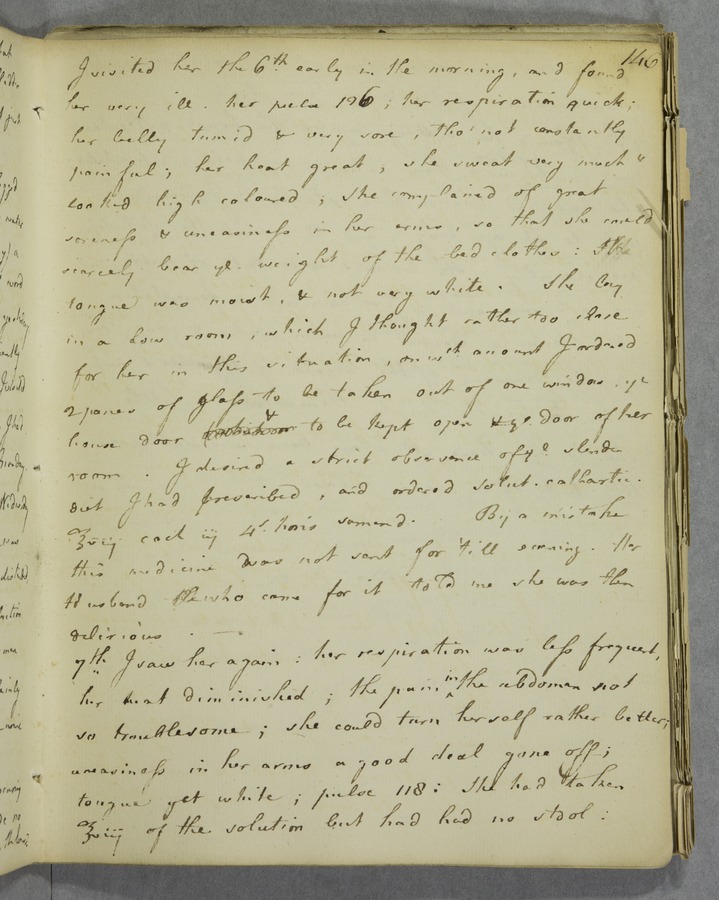 146
I visited her the 6th early in the morning, and found
her very ill. her pulse 126; her respiration quick;
her belly tumid & very sore, tho' not constantly
painful; her heat great, she sweat very much &
looked high coloured; she complained of great
soreness & uneasiness in her arms, so that she could
scarcely bear ye. weight of the bed clothes: The
tongue was moist, & not very white. She lay
in a low room, which I thought rather too close
for her in this situation, on wch. account I ordered
2 panes of glass to be taken out of one window, ye
house door to be kept open & ye. door of her
room. I desired a strict observance of ye. slender
diet I had prescribed, and ordered solut. cathartic.
℥ iij 4s. horis sumend. By a mistake
this medicine was not sent for 'till evening. Her
Husband who came for it told me she was then
delirious. —
7th. I saw her again: her respiration was less frequent,
her heat diminished; the pain in the abdomen not
so troublesome; she could turn herself rather better;
uneasiness in her arms a good deal gone off;
tongue yet white; pulse 118: She had taken
℥ of the solution but had had no stool: